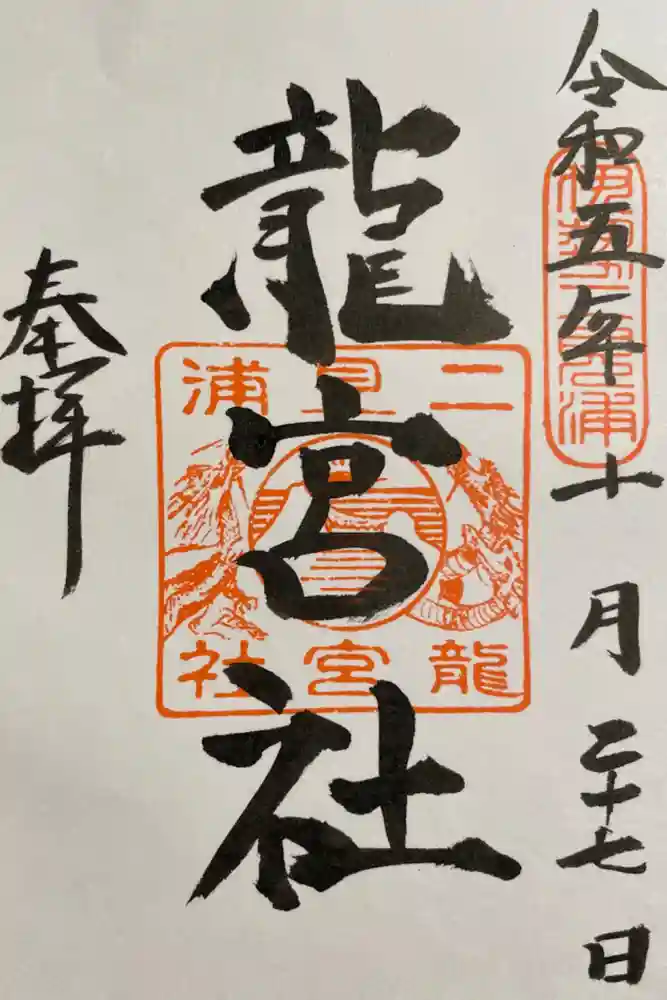 令和五年十月二十七日
伊勢二見浦
龍宮社
二見浦
龍宮社
奉拝